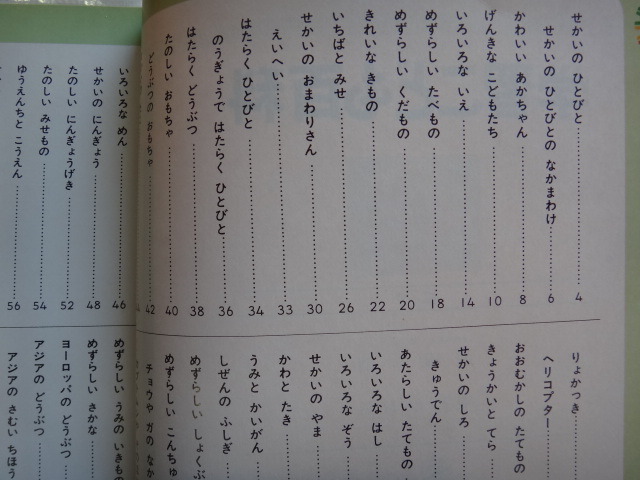 せかいの ひとびと……4
せかいの ひとびとの なかまわけ……6
かわいい あかちゃん……8
げんきな こどもたち……10
いろいろな いえ……14
めずらしい たべもの……18
めずらしい くだもの……20
きれいな きもの……22
いちばと みせ……26
せかいの おまわりさん……30
えいへい……33
はたらく ひとびと……34
のうぎょうで はたらく ひとびと……36
はたらく どうぶつ……38
たのしい おもちゃ……40
どうぶつの おもちゃ……42
いろいろな めん……46
せかいの にんぎょう……48
たのしい にんぎょうげき……52
たのしい みせもの……54
ゆうえんちと こうえん……56
りょかっき……
ヘリコプター……
おおむかしの たてもの
きょうかいと てら……
せかいの しろ……
きゅうでん……
あたらしい たてもの
いろいろな はし……
いろいろな ぞう……
せかいの やま……
かわと たき……
うみと かいがん……
しぜんの ふしぎ……
めずらしい しょくぶ
めずらしい こんちゅ
チョウや ガの なか
めずらしい うみの いきもの
めずらしい さかな……
ヨーロッパの どうぶつ……
アジアの どうぶつ……
アジアの さむい ちほう